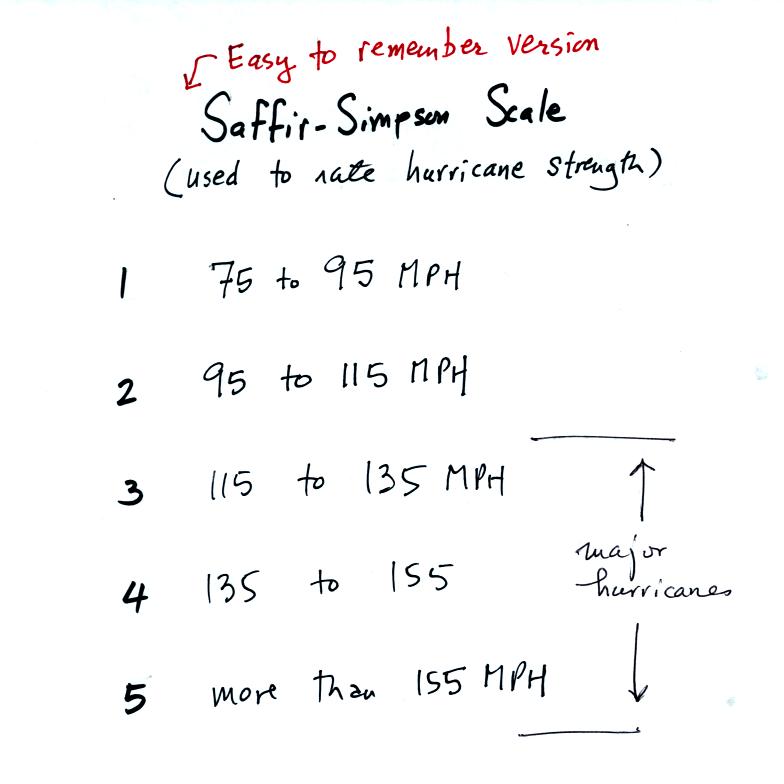 Easy to remember version
Saffir-Simpson Scale
(used to rate hurricane strength)
1 75 to 95 MPH
2 95 to 115 MPH
3 115 to 135 MPH
major
hurricanes
4 135 to 155
5 more than 155 MPH